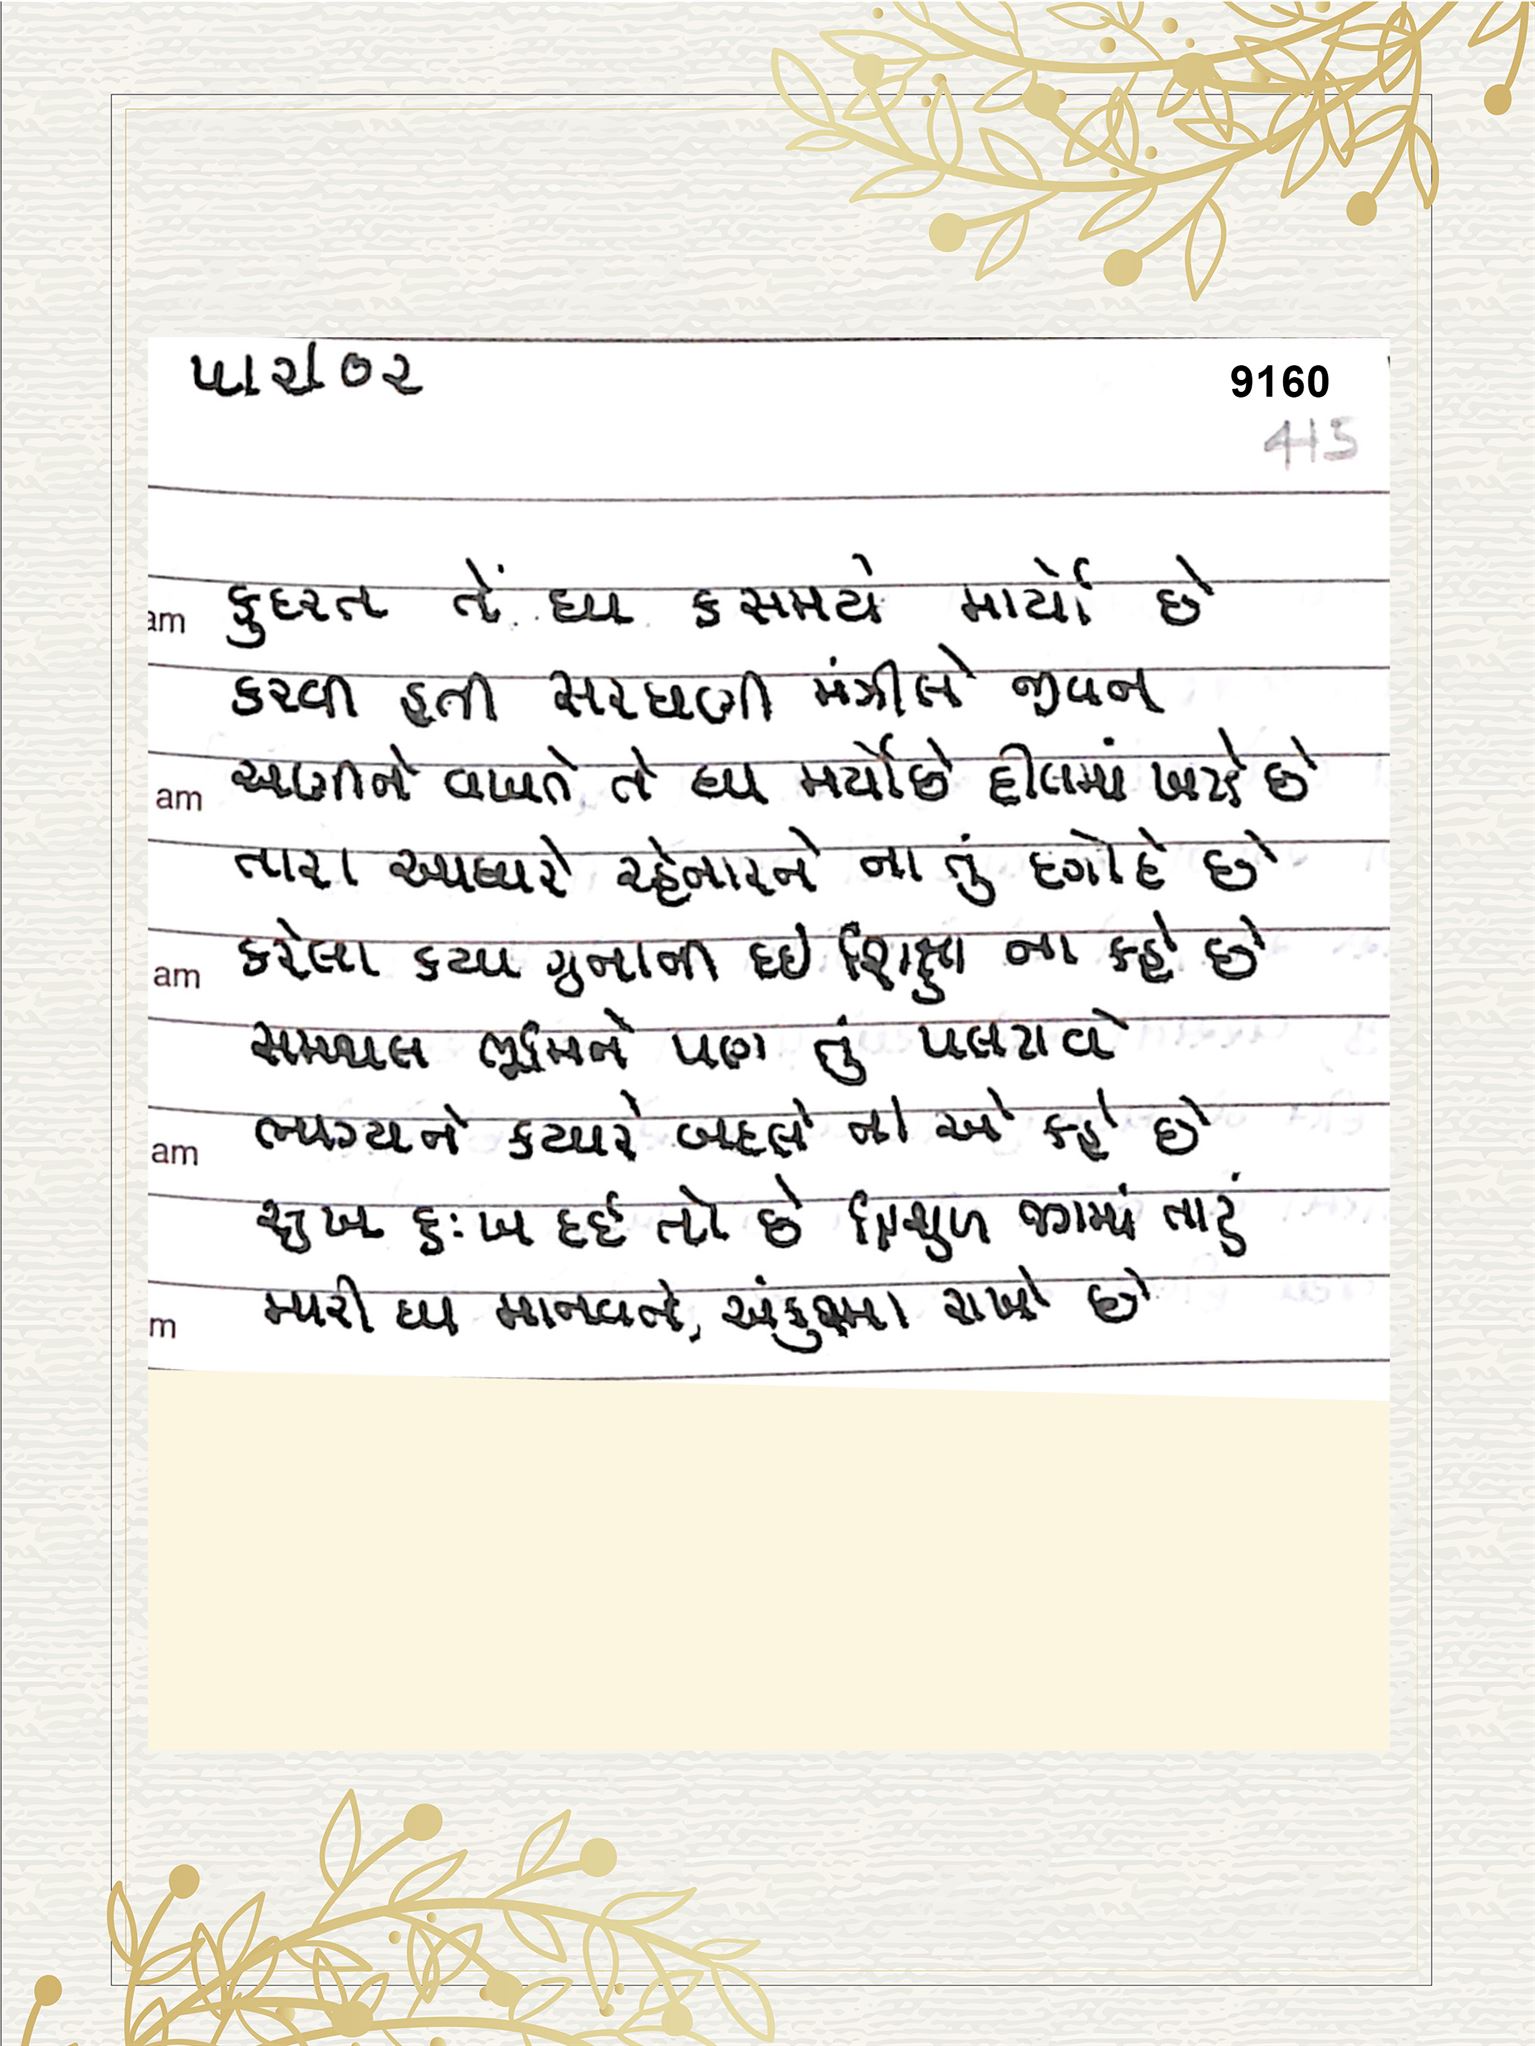 ૫/૨/૦૨
9160
415
કુદરત તેં ઘા કસમયે માર્યો છે
am
કરવી હતી સરઘણી મંત્રીલે જીવન
અણીને વખતે તે ઘા મર્યોછે દીલમાં ખટકે છે
am
તારા આધારે રહેનારને ના તું દગોદે છે
કરેલા કયા ગુનાની દઈ શિક્ષા ના કહે છે
am
સમથલ ભૂમિને પણ તું પલટાવે
ભાગ્યને કયારે બદલે ના એ કહે છે
am
સુખ દુઃખ દર્દ તો છે ત્રિશુળ જગમાં તારું
મારી ઘા માનવને, અંકુશમા રાખે છે
m